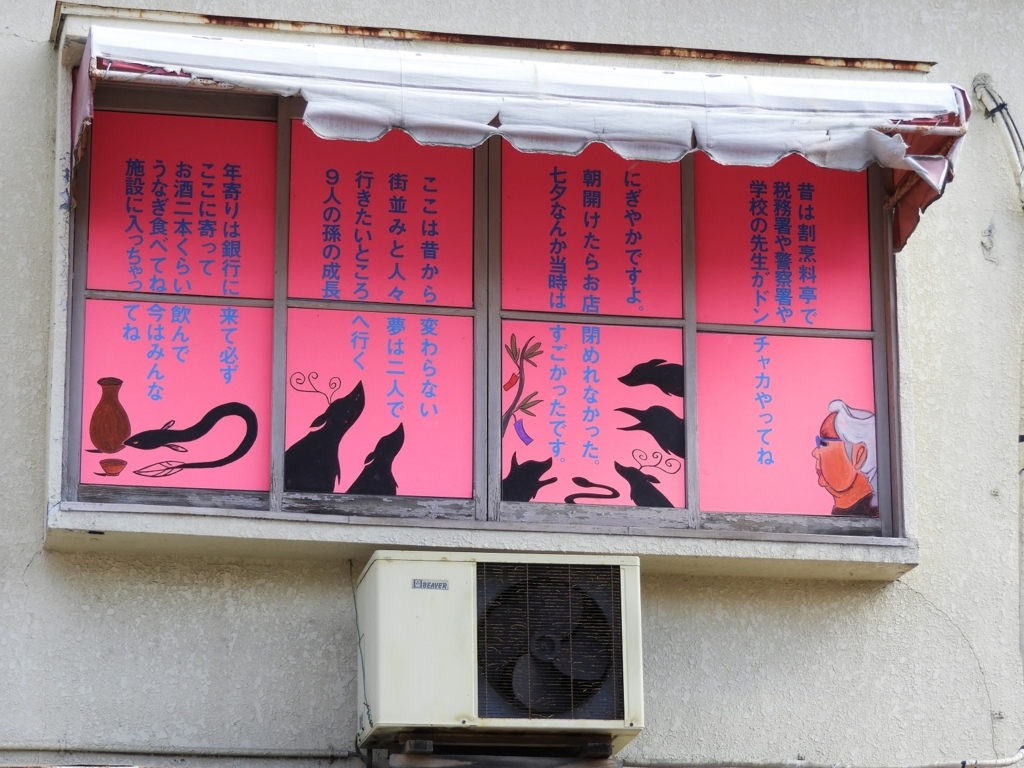 昔は割烹料亭で
税務署や警察署や
学校の先生がドンチャカやってね
にぎやかですよ。
朝開けたらお店閉めれなかった。
七夕なんか当時はすごかったです。
ここは昔から変わらない
街並みと人々夢は二人で
行きたいところへ行く
9人の孫の成長
年寄りは銀行に来て必ず
ここに寄って
お酒二本くらい飲んで
うなぎ食べてね今はみんな
施設に入っちゃってね
BEAVER